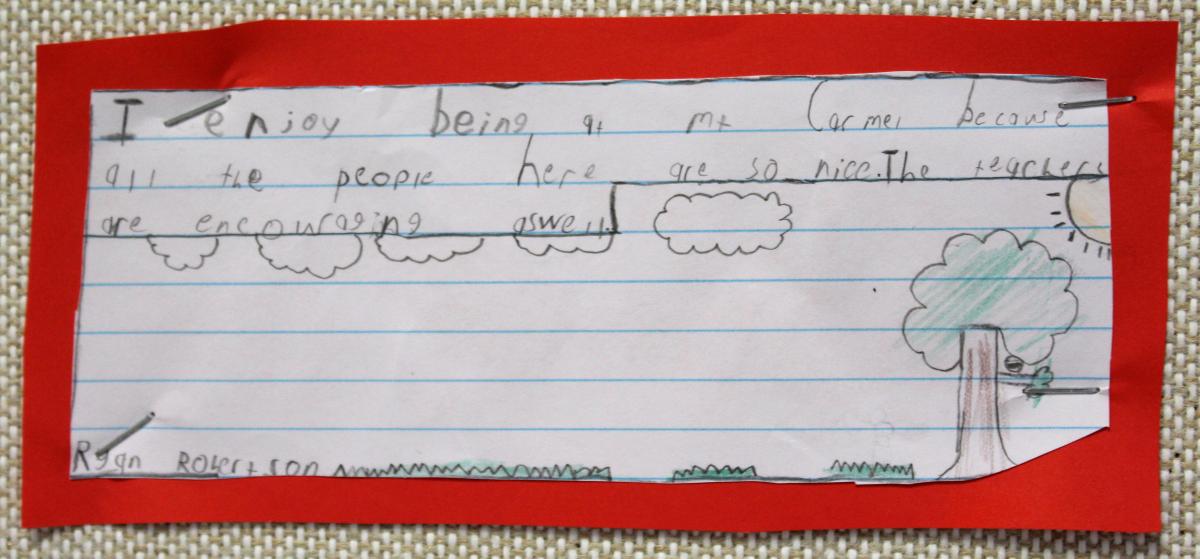 I enjoy being at mt Carmel because
all the people here are so nice. The teachers
are encouraging aswell.
Ryan Robertson